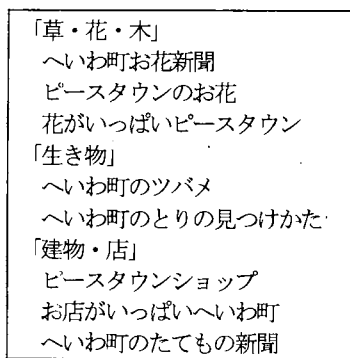 「草・花・木」
へいわ町お花新聞
ピースタウンのお花
花がいっぱいピースタウン
「生き物」
へいわ町のツバメ
へいわ町のとりの見つけかた
「建物・店」
ピースタウンショップ
お店がいっぱいへいわ町
へいわ町のたてもの新聞